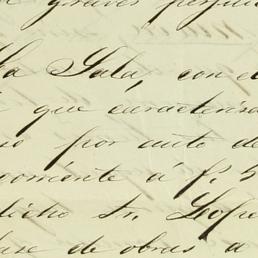 graves perjui
La Sala, con el
que caracteriza
so por auto de
corriente á f. 5
dicho Sr. Lope
ase de obras a